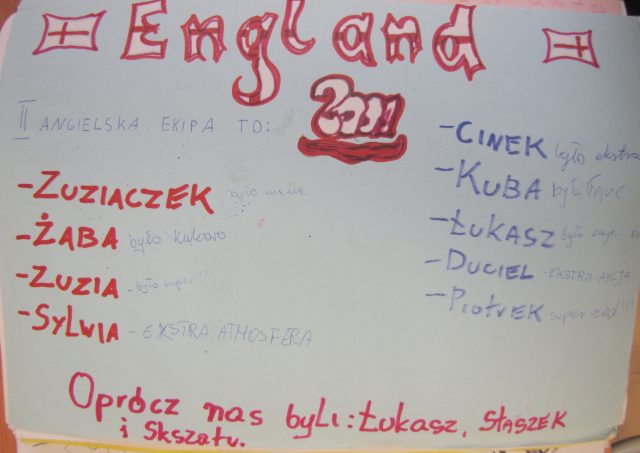 England
2001
II ANGIELSKA EKIPA TO:
-ZUZIACZEK było
-ŻABA było
-ZUZIA - było super!!!
-SYLWIA - EXSTRA ATMOSFERA
-CINEK było ekstra
-KUBA było fajnie
-ŁUKASZ było
-DUCIEL - EKSTRA AKCJA
-PIOTREK super
Oprócz nas byli: Łukasz, STASZEK
i Skszatu.